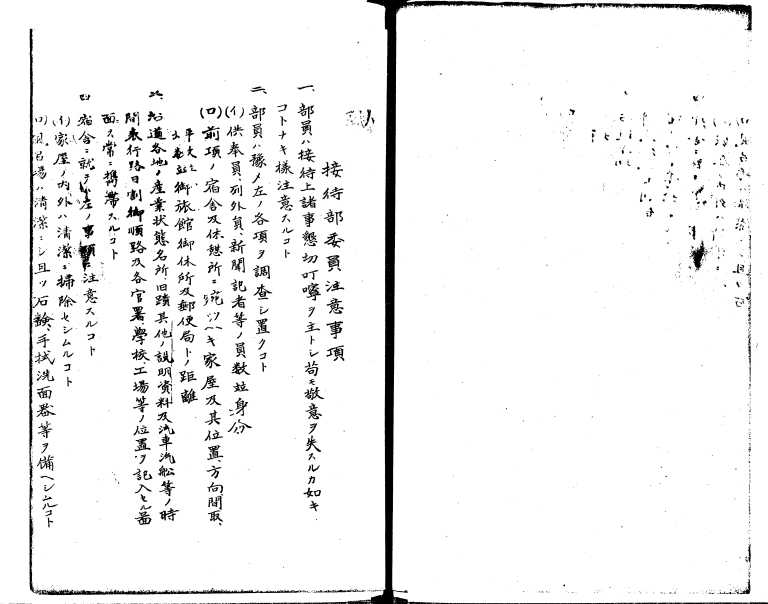 接待部委員注意事項
一、部員ハ接待上諸事懇切叮嚀ヲ主トシ苟モ敬意ヲ失スルカ如キ
コトナキ様注意スルコト
二、部員ハ豫メ左ノ各項ヲ調査シ置クコト
(イ)供奉員、列外員、新聞記者等ノ員数並身分
(ロ)前項ノ宿舎及休憩所ニ充ツヘキ家屋及其位置、方向間取、
並御旅館御休所及郵便局トノ距離
三、沿道各地ノ産業状態名所旧蹟其他ノ説明資料及汽車汽船等ノ時
間表行路日割御順路及各官署、學校、工場等ノ位置ヲ記入セル畧
面ハ常ニ携帯スルコト
四 宿舎ニ就テハ左ノ事項ニ注意スルコト
(イ)家屋ノ内、外ハ清潔ニ掃除セシムルコト
(ロ)風呂場ハ清潔ニシ且ツ石鹸、手拭洗面器等ヲ備ヘシムルコト